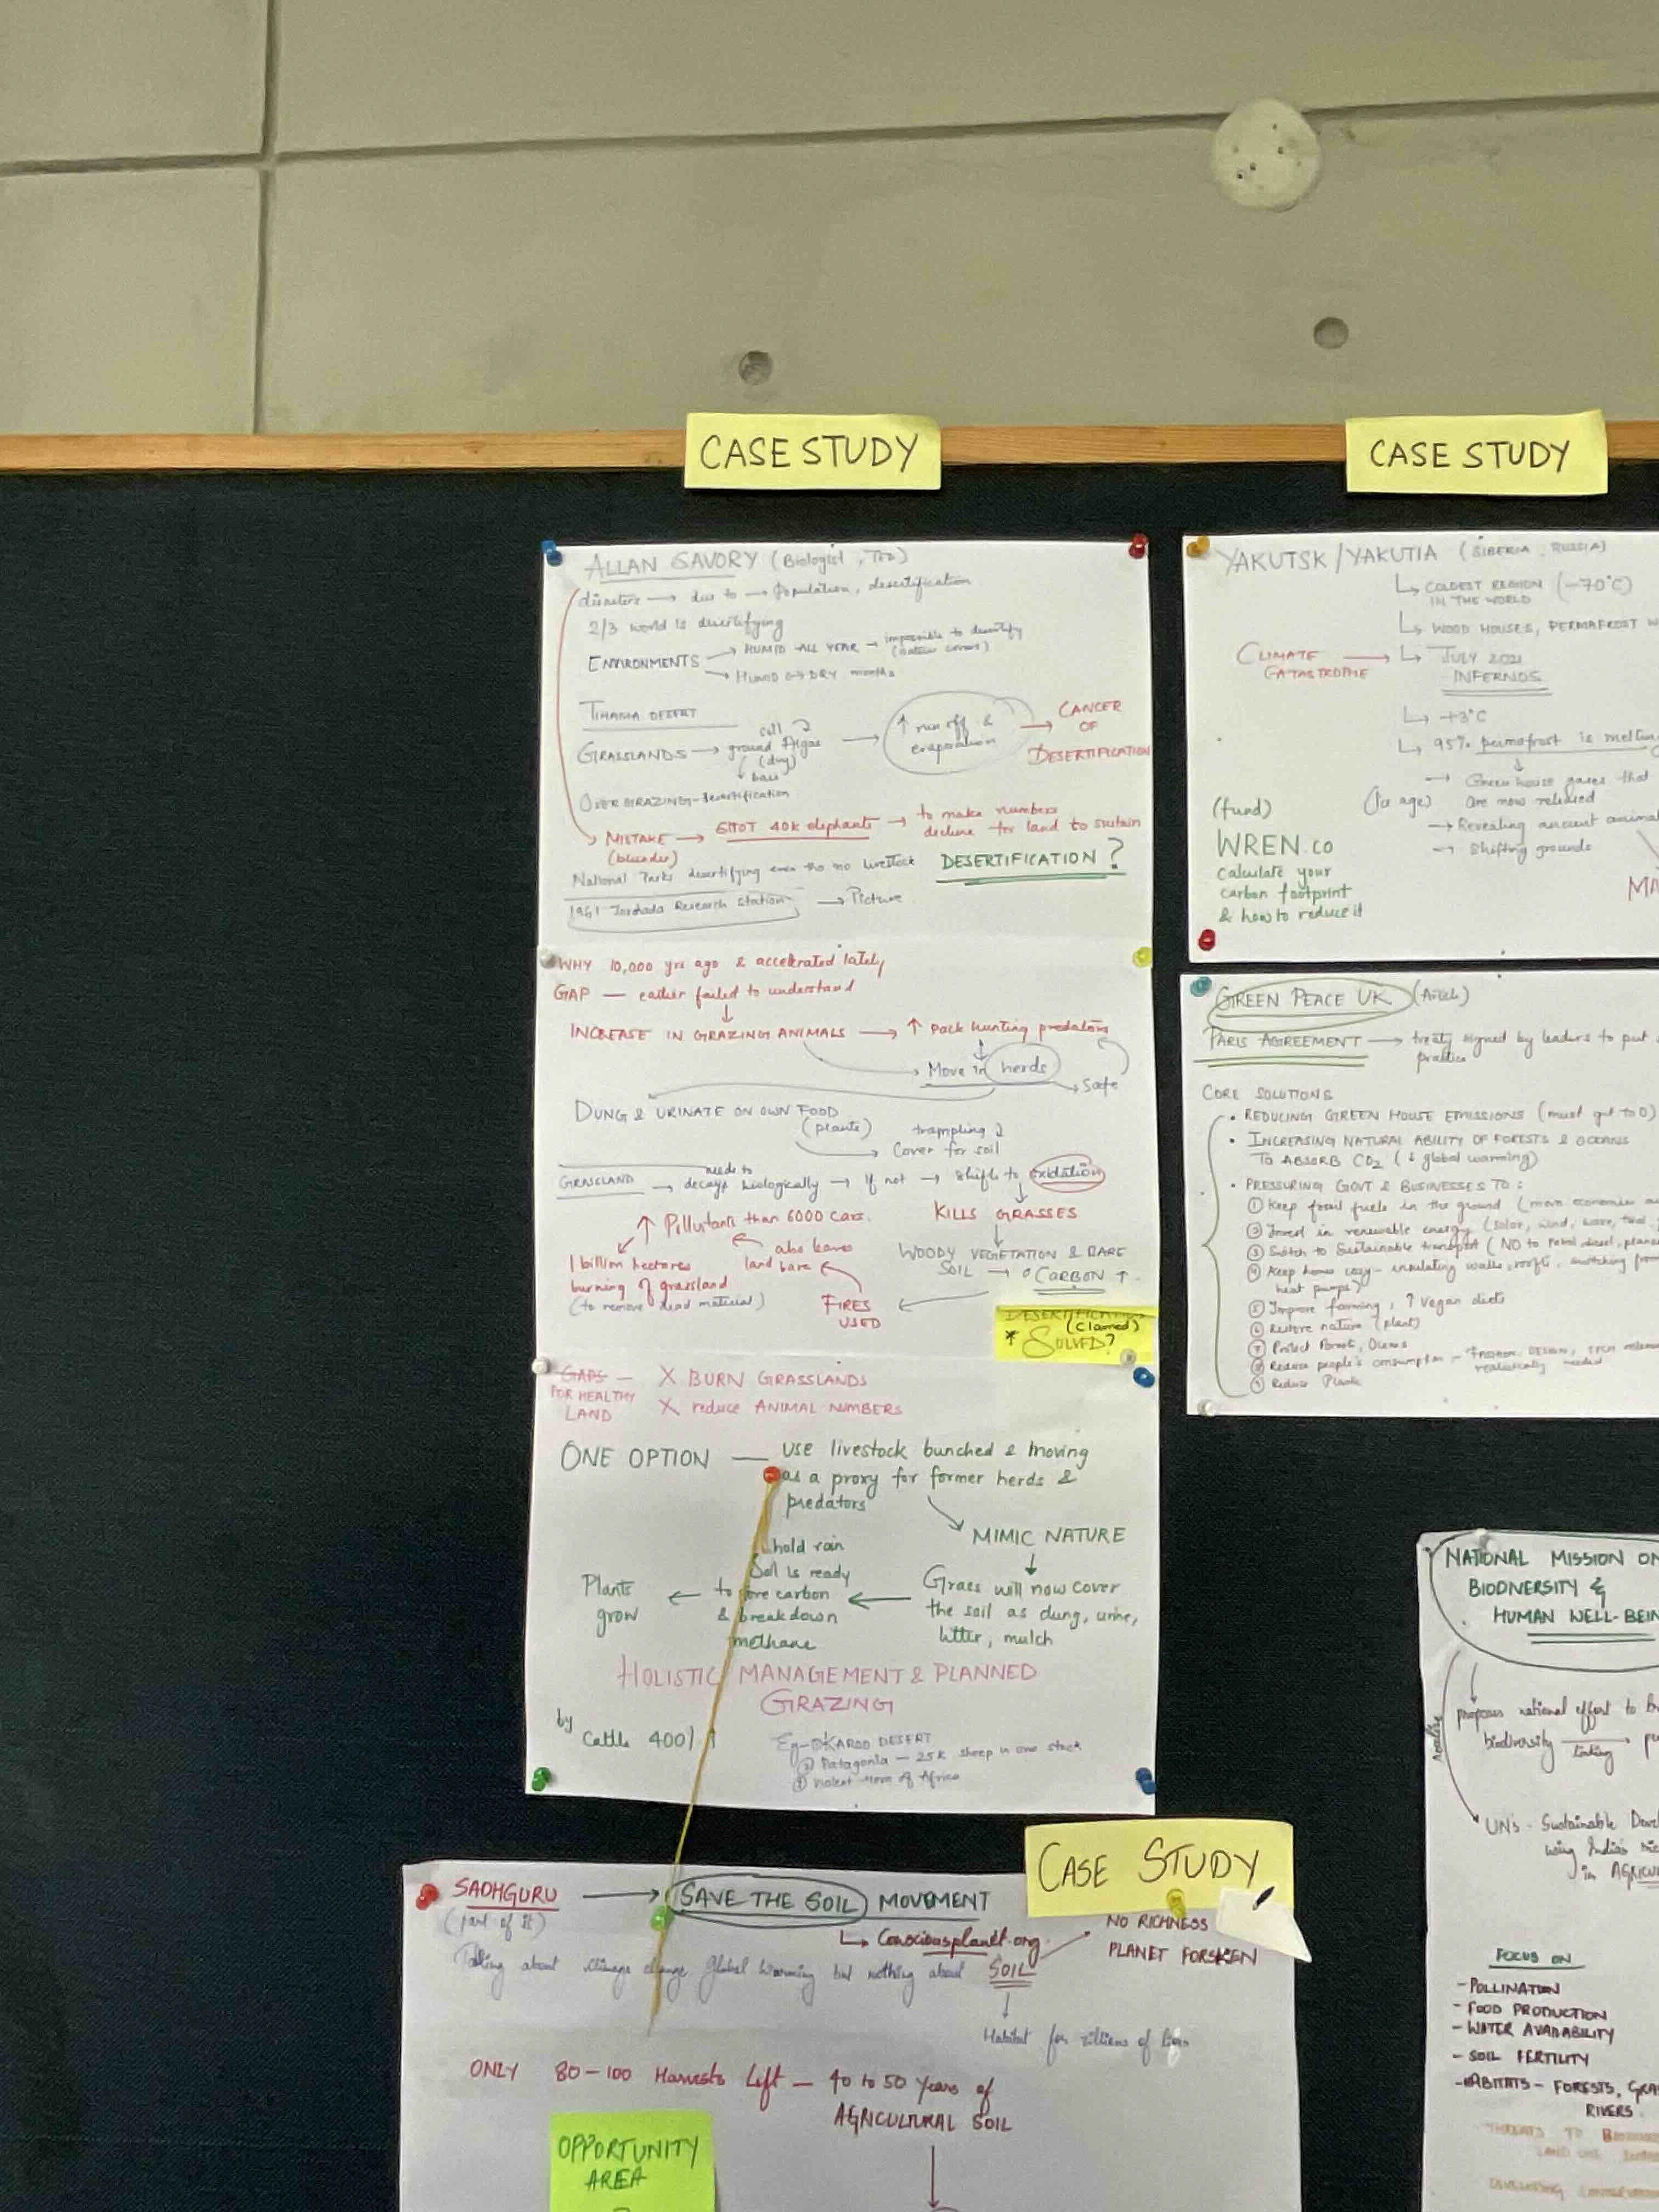 CASE STUDY
CASE STUDY
ALLAN SAVORY (Biologist, TED)
disasters → due to → Population, desertification
2/3 world is desertifying
ENVIRONMENTS → HUMID ALL YEAR → impossible to desertify
(nature covers)
→ HUMID ↔ DRY months
TIHAMA DESERT
GRASSLANDS → ground Algae
(dry)
↓ bare
→ ↑ run off &
evaporation
→ CANCER
OF
DESERTIFICATION
OVERGRAZING - desertification
MISTAKE → SHOT 40K elephants → to make numbers
decline for land to sustain
(blunder)
National Parks desertifying even tho no livestock
DESERTIFICATION?
1961 Research station → Picture
WHY 10,000 yrs ago & accelerated lately
GAP — earlier failed to understand
↓
INCREASE IN GRAZING ANIMALS → ↑ Pack hunting predators
Move in herds
→ Safe
DUNG & URINATE ON OWN FOOD
(plants)
trampling
→ Cover for soil
GRASSLAND → needs to
decay biologically → If not → shifts to oxidation
↓
KILLS GRASSES
↓
WOODY VEGETATION & BARE
SOIL → CARBON ↑
↑ Pollutants than 6000 cars.
also leaves
land bare
1 billion hectares
burning of grassland
(to remove dead material)
FIRES
USED
DESERTIFICATION
(Claimed)
* SOLVED?
GAPS —
FOR HEALTHY
LAND
X BURN GRASSLANDS
X reduce ANIMAL NUMBERS
ONE OPTION — use livestock bunched & moving
as a proxy for former herds &
predators
MIMIC NATURE
↓
Grass will now cover
the soil as dung, urine,
litter, mulch
←
hold rain
Soil is ready
to store carbon
& break down
methane
←
Plants
grow
HOLISTIC MANAGEMENT & PLANNED
GRAZING
by
Cattle 400% ↑
Eg - ① KAROO DESERT
② Patagonia — 25K sheep in one
③ Horn of Africa
YAKUTSK/YAKUTIA (SIBERIA, RUSSIA)
COLDEST REGION (-70°C)
IN THE WORLD
WOOD HOUSES, PERMAFROST
CLIMATE
CATASTROPHE
→ JULY 2021
INFERNOS
+3°C
95% permafrost is melting
→ Green house gases that
are now released
(Ice age)
→ Revealing ancient
→ Shifting grounds
(fund)
WREN.co
calculate your
carbon footprint
& how to reduce it
GREEN PEACE UK (Article)
PARIS AGREEMENT → treaty signed by leaders to put
practice
CORE SOLUTIONS
• REDUCING GREEN HOUSE EMISSIONS (must get to 0)
• INCREASING NATURAL ABILITY OF FORESTS & OCEANS
TO ABSORB CO2 (↓ global warming)
• PRESSURING GOVT & BUSINESSES TO:
① Keep fossil fuels in the ground
② Invest in renewable energy (solar, wind, wave, tidal
③ Switch to Sustainable transport (NO to Petrol, diesel, planes
④ Keep homes cosy - insulating walls, roofs, switching from
heat pumps)
⑤ Improve farming, ↑ Vegan diets
⑥ Restore nature (plant)
⑦ Protect Forest, Oceans
⑧ Reduce people's consumption - FASHION, DESIGN, TECH
realistically needed
⑨ Reduce Plastic
NATIONAL MISSION ON
BIODIVERSITY &
HUMAN WELL-BEIN
proposes national effort to
biodiversity linking →
UN's - Sustainable
using India's
in
FOCUS ON
- POLLINATION
- FOOD PRODUCTION
- WATER AVAILABILITY
- SOIL FERTILITY
- HABITATS - FORESTS,
RIVERS.
THREATS TO
CASE STUDY
SADHGURU → SAVE THE SOIL MOVEMENT
(part of it)
Consciousplanet.org
NO RICHNESS
PLANET FORSKEN
Talking about climate change global warming but nothing about SOIL
↓
Habitat for
ONLY 80-100 Harvests Left — 40 to 50 years of
AGRICULTURAL SOIL
OPPORTUNITY
AREA